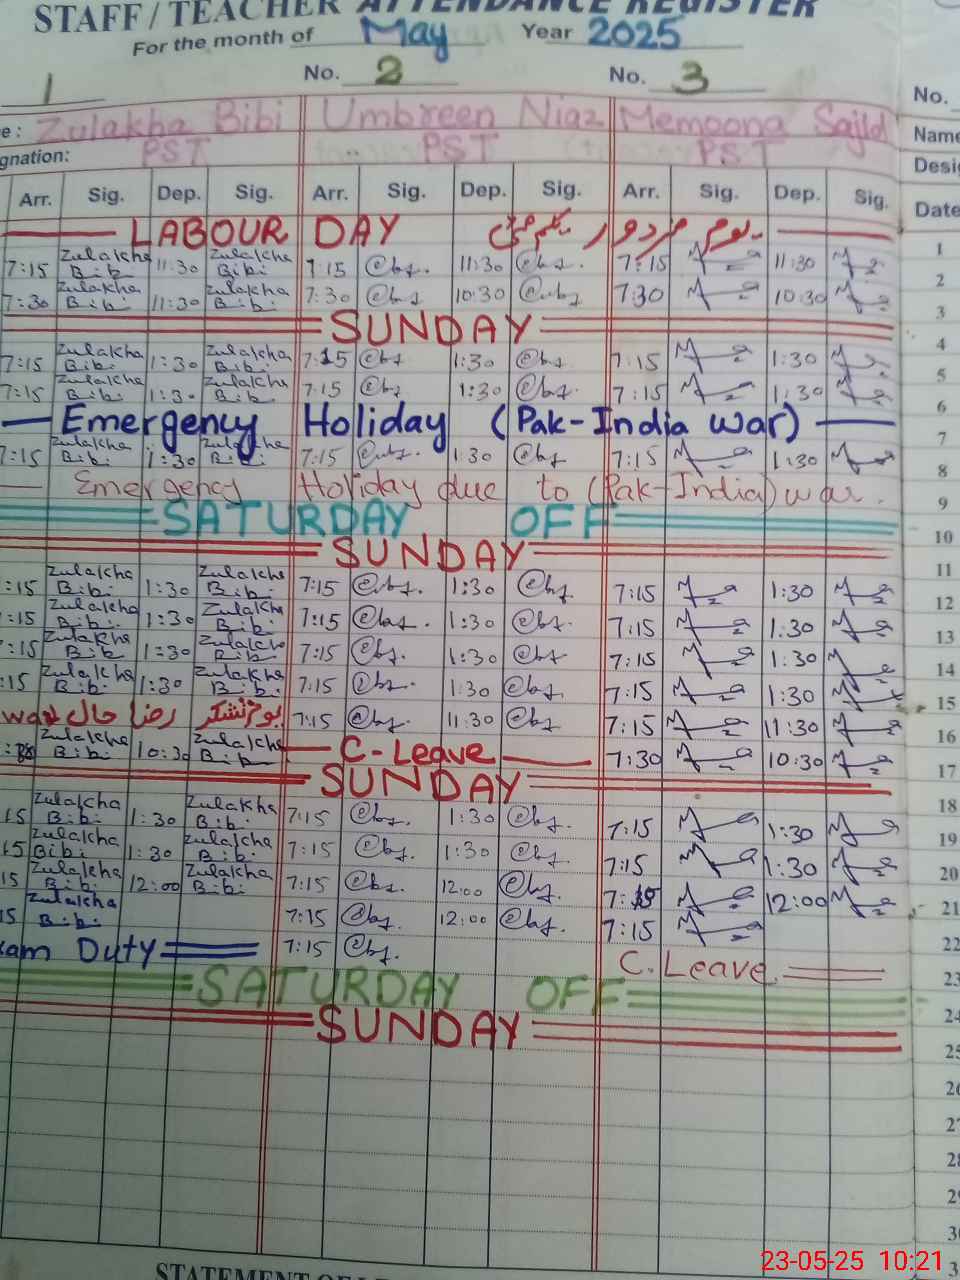 STAFF / TEACHER ATTENDANCE REGISTER
For the month of May Year 2025
1 No. 2 No. 3 No.
e: Zulakha Bibi Umbreen Niaz Memoona Sajid Name
gnation: PST PST PST Desig
Arr. Sig. Dep. Sig. Arr. Sig. Dep. Sig. Arr. Sig. Dep. Sig. Date
LABOUR DAY 1
7:15 Zulakha Bibi 11:30 Zulakha Bibi 7:15 11:30 7:15 11:30 2
7:30 Zulakha Bibi 11:30 Zulakha Bibi 7:30 10:30 7:30 10:30 3
SUNDAY 4
7:15 Zulakha Bibi 1:30 Zulakha Bibi 7:15 1:30 7:15 1:30 5
7:15 Zulakha Bibi 1:30 Zulakha Bibi 7:15 1:30 7:15 1:30 6
Emergency Holiday (Pak-India war) 7
7:15 Zulakha Bibi 1:30 Zulakha Bibi 7:15 1:30 7:15 1:30 8
Emergency Holiday due to (Pak-India) war. 9
SATURDAY OFF 10
SUNDAY 11
:15 Zulakha Bibi 1:30 Zulakha Bibi 7:15 1:30 7:15 1:30 12
:15 Zulakha Bibi 1:30 Zulakha Bibi 7:15 1:30 7:15 1:30 13
:15 Zulakha Bibi 1:30 Zulakha Bibi 7:15 1:30 7:15 1:30 14
:15 Zulakha Bibi 1:30 Zulakha Bibi 7:15 1:30 7:15 1:30 15
یوم تشکر 7:15 11:30 7:15 11:30 16
Zulakha Bibi 10:30 Zulakha Bibi C-Leave 7:30 10:30 17
SUNDAY 18
15 Zulakha Bibi 1:30 Zulakha Bibi 7:15 1:30 7:15 1:30 19
15 Zulakha Bibi 1:30 Zulakha Bibi 7:15 1:30 7:15 1:30 20
15 Zulakha Bibi 12:00 Zulakha Bibi 7:15 12:00 7:15 12:00 21
15 Zulakha Bibi 7:15 12:00 7:15 22
am Duty 7:15 C.Leave 23
SATURDAY OFF 24
SUNDAY 25
26
28
29
23-05-25 10:21